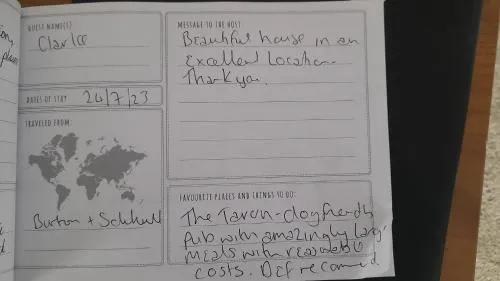 GUEST NAME(S)
Clarke
DATES OF STAY 24/7/23
TRAVELED FROM:
Burton +
MESSAGE TO THE HOST
Beautiful house in an
excellent location.
Thankyou.
FAVOURITE PLACES AND THINGS TO DO:
The Tavern - dog friendly
pub with amazingly large
meals with reasonable
costs. Def recommend